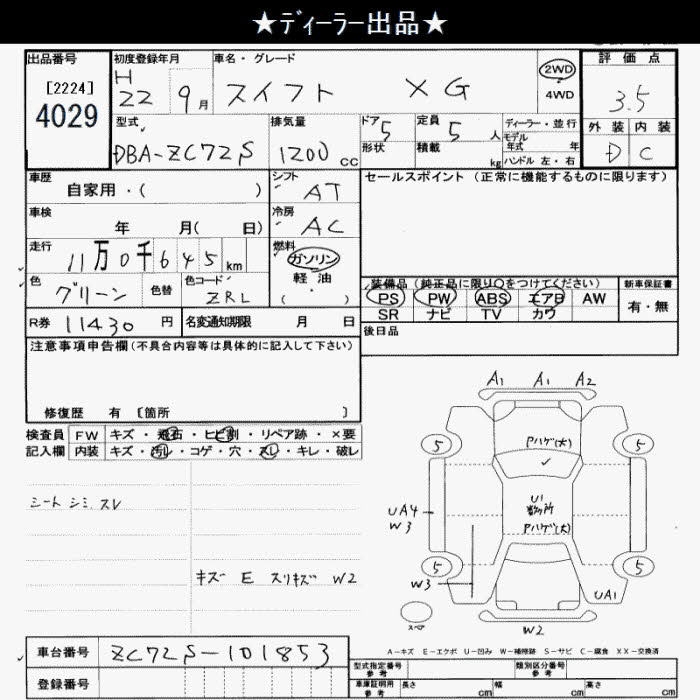 ★ﾃﾞｨｰﾗｰ出品★
出品番号
[2224]
4029
初度登録年月
H
22 9月
車名・グレード
スイフト XG
2WD
4WD
評価点
3.5
外装 内装
D C
型式
DBA-ZC72S
排気量
1200 cc
ドア 5
形状
定員 5 人
積載 kg
ディーラー・並行
モデル
年式 年
ハンドル 左・右
車歴
自家用・( )
シフト
AT
車検
年 月( 日)
冷房
AC
走行
11万0千645km
燃料
ガソリン
軽油
( ・ )
色
グリーン
色替
色コード
ZRL
R券 11430 円
名変通知期限 月 日
セールスポイント (正常に機能するものに限ります)
装備品(純正品に限り○をつけてください)
PS PW ABS エアB AW
SR ナビ TV カワ
新車保証書
有・無
後日品
注意事項申告欄(不具合内容等は具体的に記入して下さい)
修復歴 有 [箇所 ]
検査員 FW キズ・飛石・ヒビ割・リペア跡・×要
記入欄 内装 キズ・汚れ・コゲ・穴・スレ・キレ・破レ
シート シミ スレ
キズ E スリキズ W2
A1 A1 A2
5 5
Pハゲ(大)
UA4
W3
U1
数ヶ所
Pハゲ(大)
5 5
W3
UA1
スペア
W2
A-キズ E-エクボ U-凹み W-補修跡 S-サビ C-腐食 XX-交換済
車台番号 ZC72S-101853
登録番号
型式指定番号
参考
類別区分番号
参考
車庫証明用
参考
長さ cm 幅 cm 高さ cm